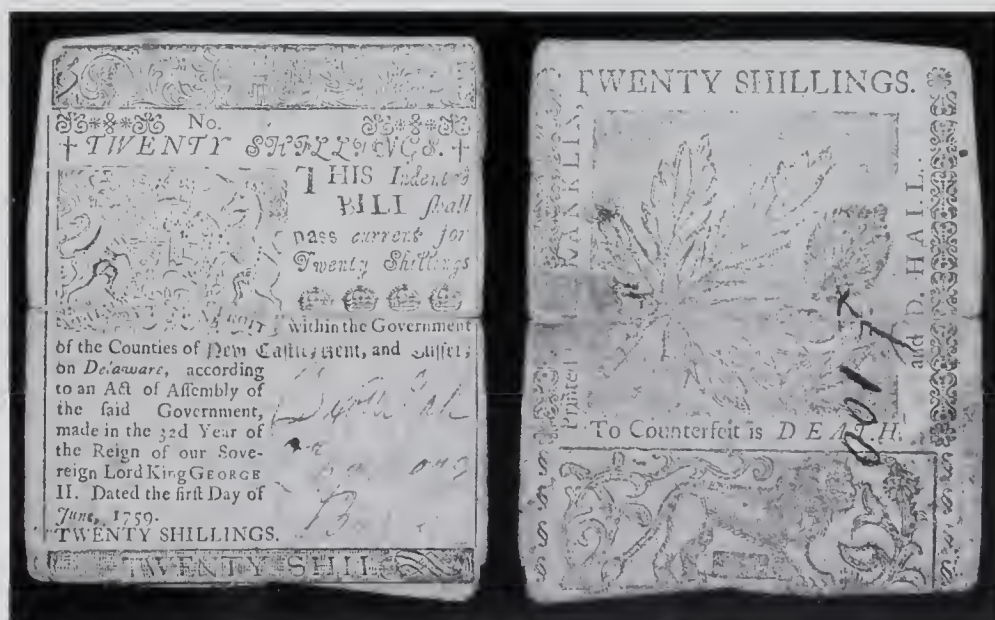 No.
TWENTY SHILLINGS.
THIS Indented
BILL ſhall
paſs current for
Twenty Shillings
within the Government
of the Counties of New Caſtle, Kent, and Suſſex,
on Delaware, according
to an Act of Aſſembly of
the ſaid Government,
made in the 32d Year of
the Reign of our Sove-
reign Lord King GEORGE
II. Dated the firſt Day of
June, 1759.
TWENTY SHILLINGS.
TWENTY SHIL
TWENTY SHILLINGS.
Printed FRANKLIN,
and D. HALL.
To Counterfeit is DEATH.